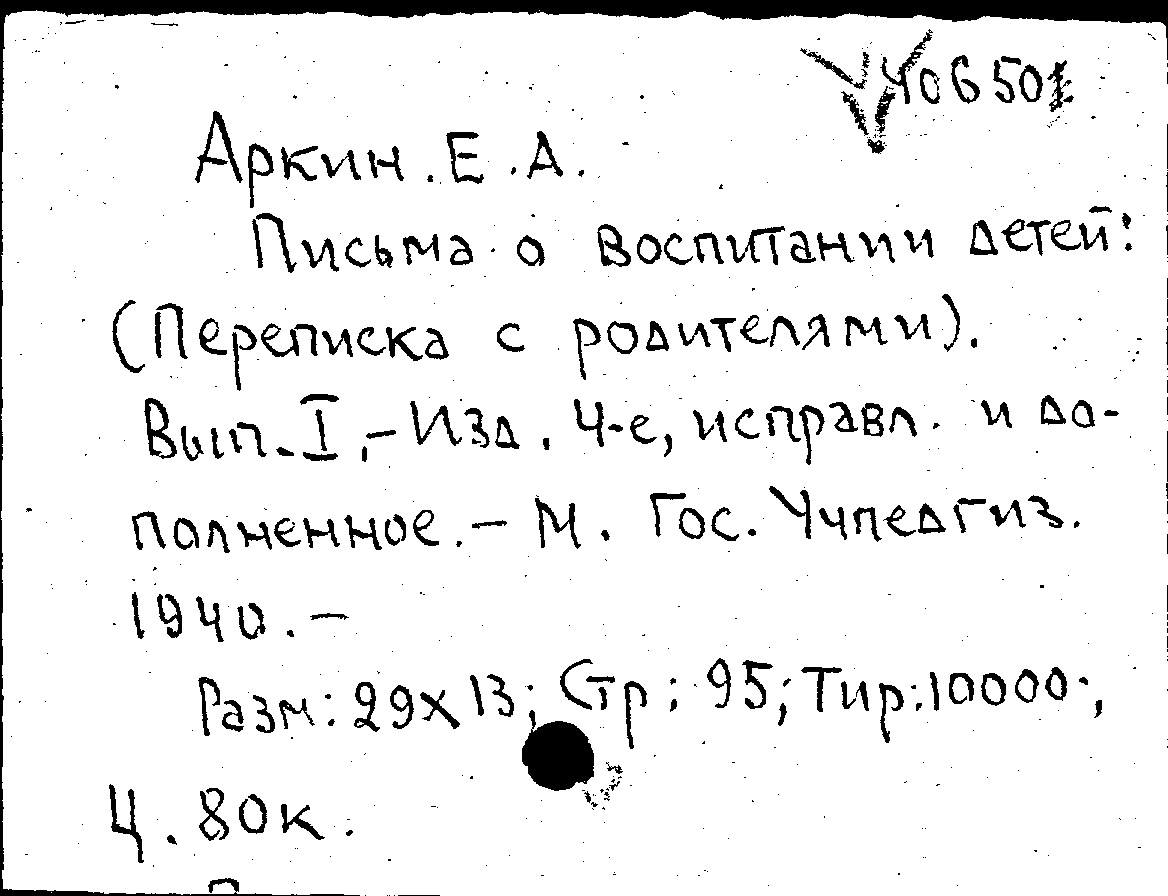 406501
Аркин. Е. А.
Письма о воспитании детей:
(Переписка с родителями).
Вып. I, - Изд. 4-е, исправл. и до-
полненное. - М. Гос. Учпедгиз.
1940. -
Разм: 29х13; Стр: 95; Тир: 10000;
Ц. 80к.